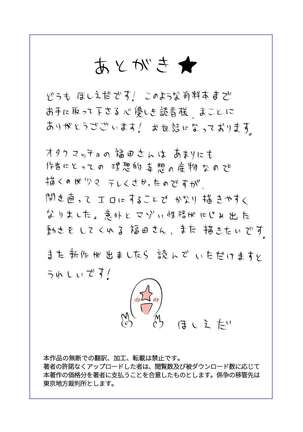 あとがき★
どうも ほしえだです! このような有料本まで
お手に取って下さる心優しき読者様、まことに
ありがとうございます! お世話になっております。
オタクマッチョの福田さんは あまりにも
作者にとっての 理想的妄想の産物なので
描くのがツマ テレくさかったのですが、
開き直ってエロにすることでかなり描きやすく
なりました。意外とマゾい性格がにじみ出た
動きをしてくれる福田さん、また描きたいです。
また新作が出ましたら 読んで いただけますと
うれしいです!
ほしえだ
本作品の無断での翻訳、加工、転載は禁止です。
著者の許諾なくアップロードした者は、閲覧数及び被ダウンロード数に応じて
本著作の価格分を著者に支払うことを合意したものとします。係争の移管先は
東京地方裁判所とします。